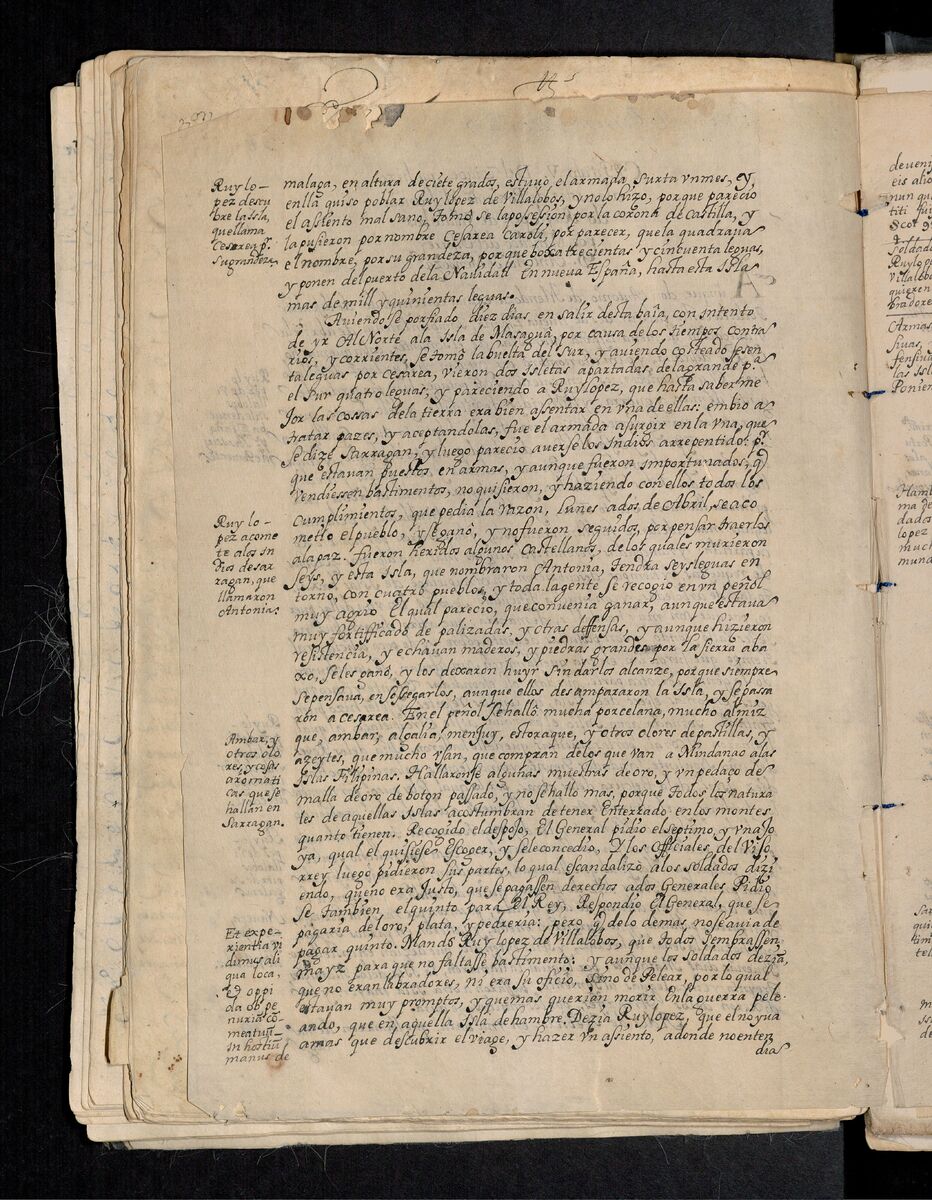 Ruy lo-
pez descu
bre la Isla,
quellama
Cesarea pr.
su grandeza
malaga, en altura de ciete grados, estuuo el armada surta vn mes, y
enlla quiso poblar Ruy lopez de Villalobos, y nolo hizo, porque parecio
el assiento mal sano, Tomo se la possesion por la corona de Castilla, y
la pusieron por nombre Cesarea Caroli, por parecer, que la quadraua
el nombre, por su grandeza, por que boxa trecientas y cincuenta leguas,
y ponen del puerto dela Nauidatt En nueua España, hasta esta Isla
mas de mill y quinientas leguas.
Auiendose porfiado diez dias en salir desta baia, con intento
de yr Al Norte ala Isla de Masaguâ, por causa delos tiempos contra
rios, y corrientes, se tomo la buelta del Sur, y auiendo costeado sesen
ta leguas por cesarea, vieron dos Isletas apartadas dela grande pa.
el Sur quatro leguas, y pareciendo a Ruylopez, que hasta saber me
Jor las cossas dela tierra era bien assentar en vna de ellas: embio a
tratar pazes, y aceptandolas, fue el armada a surgir en la vna, que
se dize Sarragan, y luego parecio auerse los Indios arrepentido: pr.
que estauan puestos, en armas, y aunque fueron importunados, q̃
vendiessen bastimentos, no quisieron, y haziendo con ellos todos los
Ruy lo-
pez acome
te alos in
dios desar
ragan, que
llamaron
Antonia.
cumplimientos, que pedia la razon, lunes ados de Abril, se aco
metio el pueblo, y se ganô, y no fueron seguidos, por pensar traerlos
ala paz. fueron heridos algunos Castellanos, de los quales murieron
seys, y esta Isla, que nombraron Antonia, tendra seys leguas en
torno, con cuatro pueblos, y toda la gente se recogio en vn peñol
muy agrio El qual parecio, que conuenia ganar, aunque estaua
muy fortifficado de palizadas, y otras deffensas, y aunque hizieron
resistencia, y echauan maderos, y piedras grandes por la sierra aba
xo, se les ganô, y los dexaron huyr sin darlos alcanze, porque siempre
se pensaua, en sossegarlos, aunque ellos desampararon la Isla, y se passa
ron a cesarea. En el peñol se hallô mucha porcelana, mucho almiz
Ambar, y
otros olo
res, y cosas
aromati
cas que se
hallan en
Sarragan.
que, ambar, algalia, menjuy, estoraque, y otros olores de pastillas, y
azeytes, que mucho vsan, que compran delos que van a Mindanao alas
Islas Filipinas. Hallaronse algunas muestras de oro, y vn pedaço de
malla de oro de boton passado, y no se hallo mas, porque todos los natura
les de aquellas Islas acostumbran de tener Enterrado en los montes
quanto tienen. Recogido el despojo, El General pidio el septimo, y vna Jo
ya, qual el quisiese Escoger, y se le concedio, Y los Officiales del Visso
rrey luego pidieron sus partes, lo qual escandalizô a los soldados dizi
endo, que no era Justo, que se pagassen derechos a dos Generales, Pidio
se tambien el quinto para El Rey, Respondio El General, que se
pagaria del oro, plata, y pedreria: pero q̃ delo demas no se auia de
Et expe-
rientia vi
dimus ali
qua loca,
Ed oppi
da ob pe
nuria cõ-
meatuũ-
in hostiũ
manus de
pagar quinto. Mandô Ruy lopez de Villalobos, que todos sembrassen
mayz para que no faltasse bastimento: y aunque los soldados dezia,
que no eran labradores, ni era su oficio, sino de Pelear, por lo qual
estauan muy promptos, y que mas querian morir En la guerra pele-
ando, que en aquella Isla de hambre. Dezia Ruylopez, que el no yua
amas que descubrir el viage, y hazer vn assiento, adonde no enten
dia